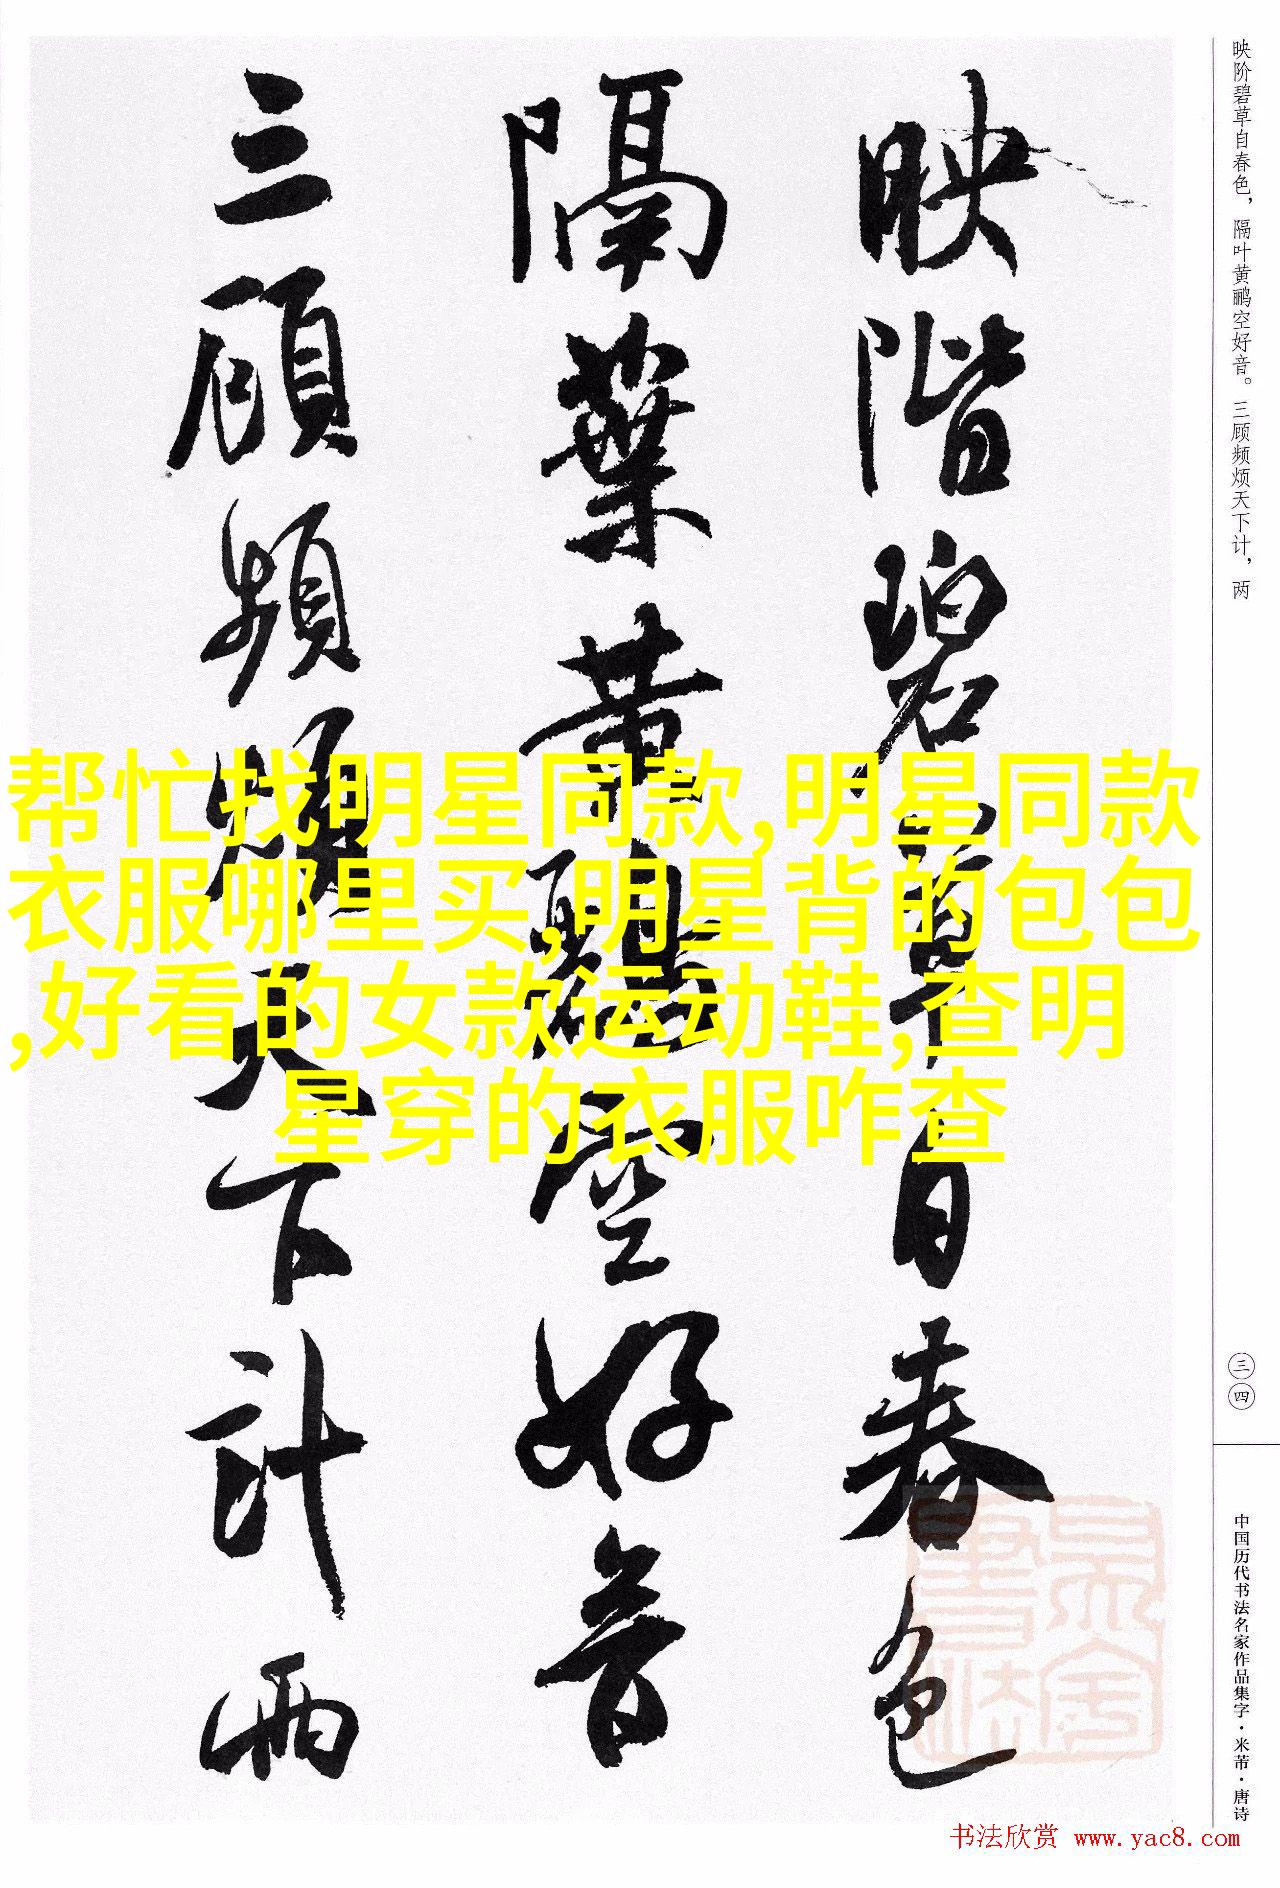 映階碧草自春色
隔葉黄鸝空好音
三顧頻煩天下計兩
映阶碧草自春色，隔叶黄鹂空好音。三顾频烦天下计，两
帮忙找明星同款,明星同款
衣服哪里买,明星背的包包
,好看的女款运动鞋,查明
星穿的衣服咋查
三四
中国历代书法名家作品集字·米芾·唐诗
书法欣赏 www.yac8.com